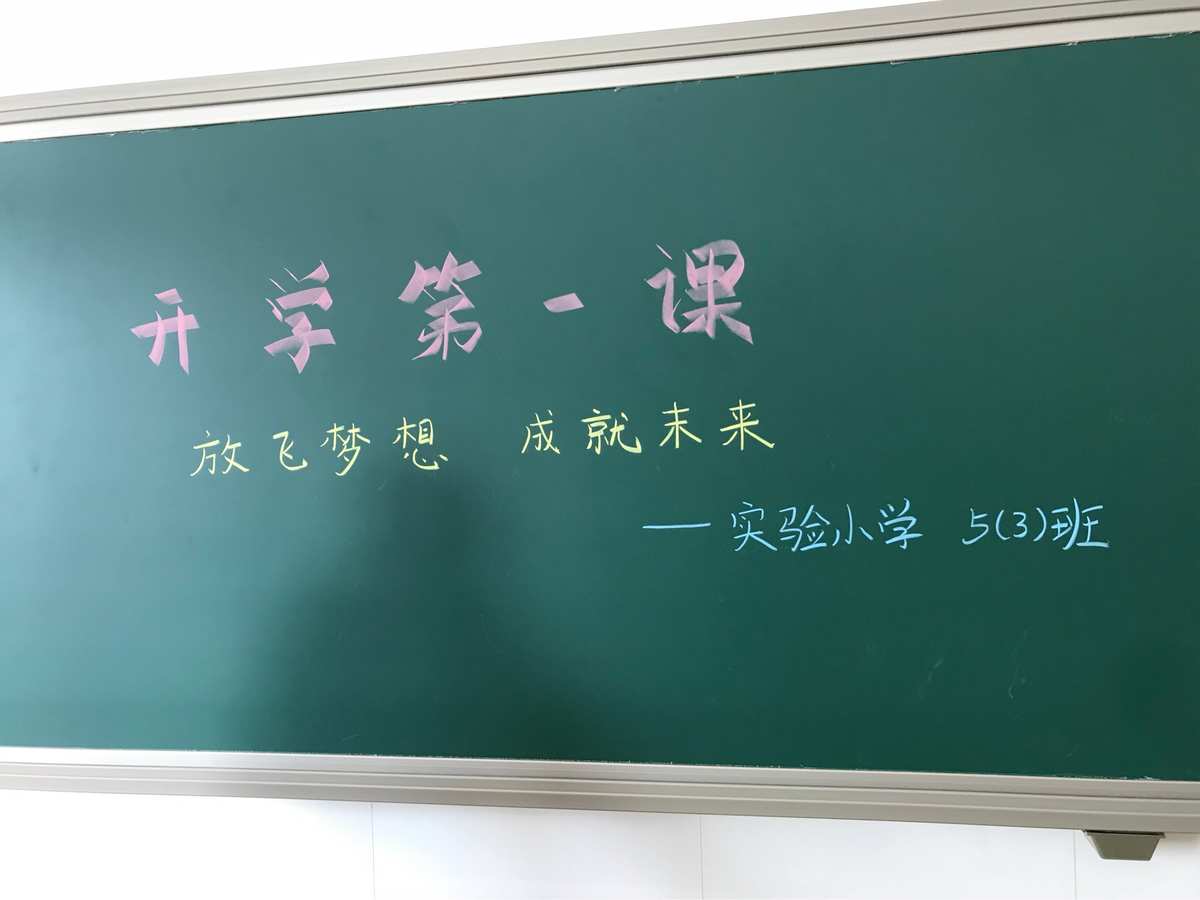 开学第一课
放飞梦想 成就未来
— 实验小学 5(3)班